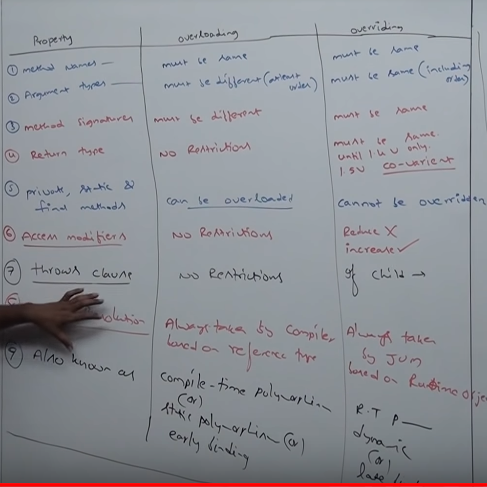 Property overloading overriding
① method names — must be same must be same
② Argument types — must be different (atleast order) must be same (including order)
③ method signatures must be different must be same
④ Return type NO Restrictions must be same
until 1.4 V only.
1.5V co-varient
⑤ private, static & can be overloaded cannot be overridden
final methods
⑥ Access modifiers NO Restrictions Reduce X
increase ✓
⑦ throws clause NO Restrictions if child →
Always taken by Compiler Always taken
based on reference type by JVM
based on Runtime object
⑨ Also known as compile-time polymorphism R.T P—
(or) dynamic
static polymorphism (or) (or)
early binding late